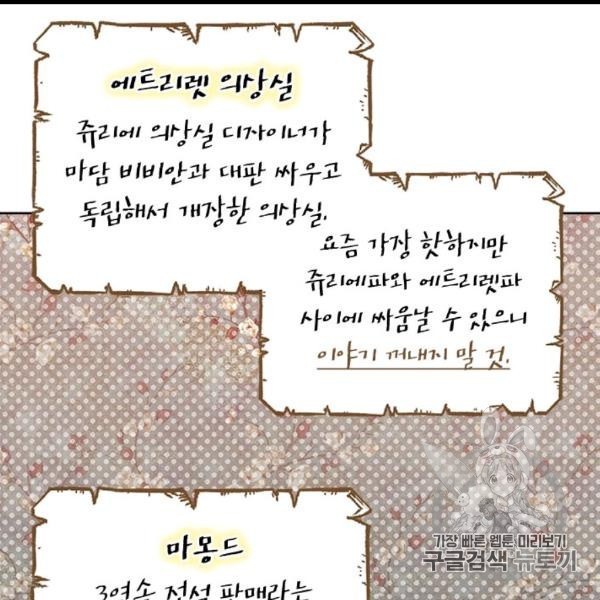 에트리렛 의상실
쥬리에 의상실 디자이너가
마담 비비안과 대판 싸우고
독립해서 개장한 의상실.
요즘 가장 핫하지만
쥬리에파와 에트리렛파
사이에 싸움날 수 있으니
이야기 꺼내지 말 것.
마몽드
3연속 전석 판매라는
가장 빠른 웹툰 미리보기
구글검색 뉴토끼